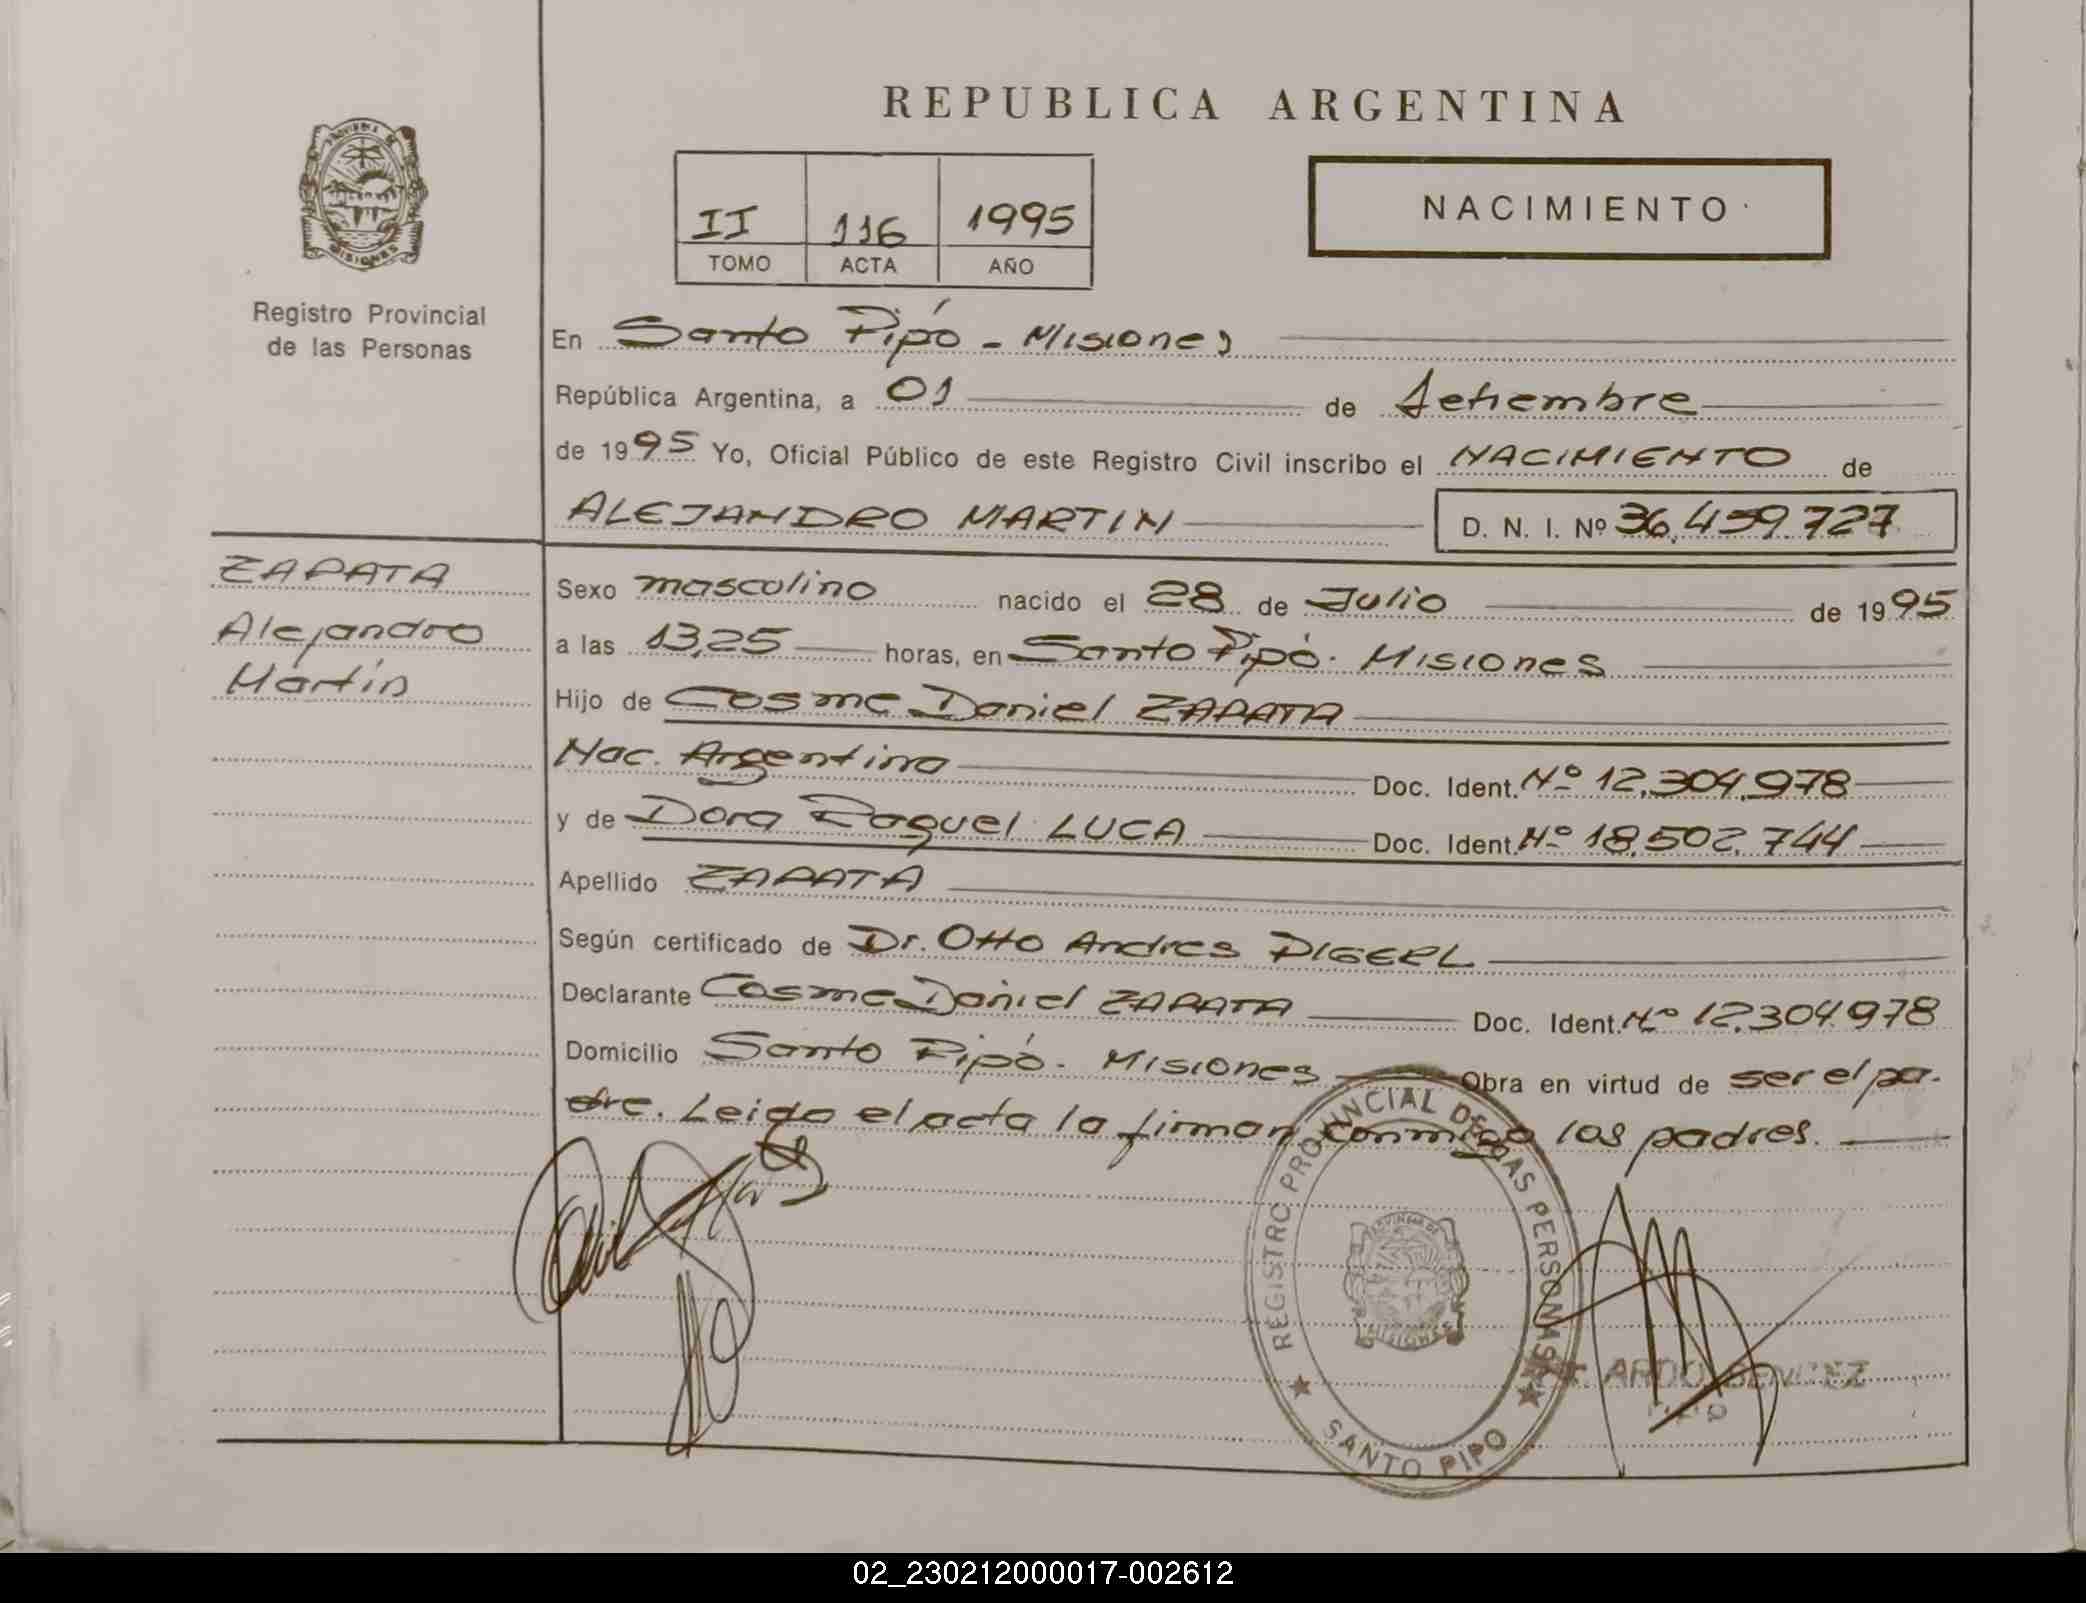 REPUBLICA ARGENTINA
PROVINCIA DE
MISIONES
Registro Provincial
de las Personas
II 116 1995
TOMO ACTA AÑO
NACIMIENTO
En Santo Pipó - Misiones
República Argentina, a 01 de Setiembre
de 1995 Yo, Oficial Público de este Registro Civil inscribo el NACIMIENTO de
ALEJANDRO MARTIN D. N. I. Nº 36.459.727
ZAPATA
Alejandro
Martín
Sexo masculino nacido el 28 de Julio de 1995
a las 13,25 horas, en Santo Pipó. Misiones
Hijo de Cosme Daniel ZAPATA
Nac. Argentina Doc. Ident. Nº 12.304.978
y de Dora Raquel LUCA Doc. Ident. Nº 18.502.744
Apellido ZAPATA
Según certificado de Dr. Otto Andres
Declarante Cosme Daniel ZAPATA Doc. Ident. Nº 12.304.978
Domicilio Santo Pipó. Misiones Obra en virtud de ser el pa-
dre. Leida el acta la firman conmigo los padres.
REGISTRO PROVINCIAL DE LAS PERSONAS
MISIONES
SANTO PIPO
02_230212000017-002612